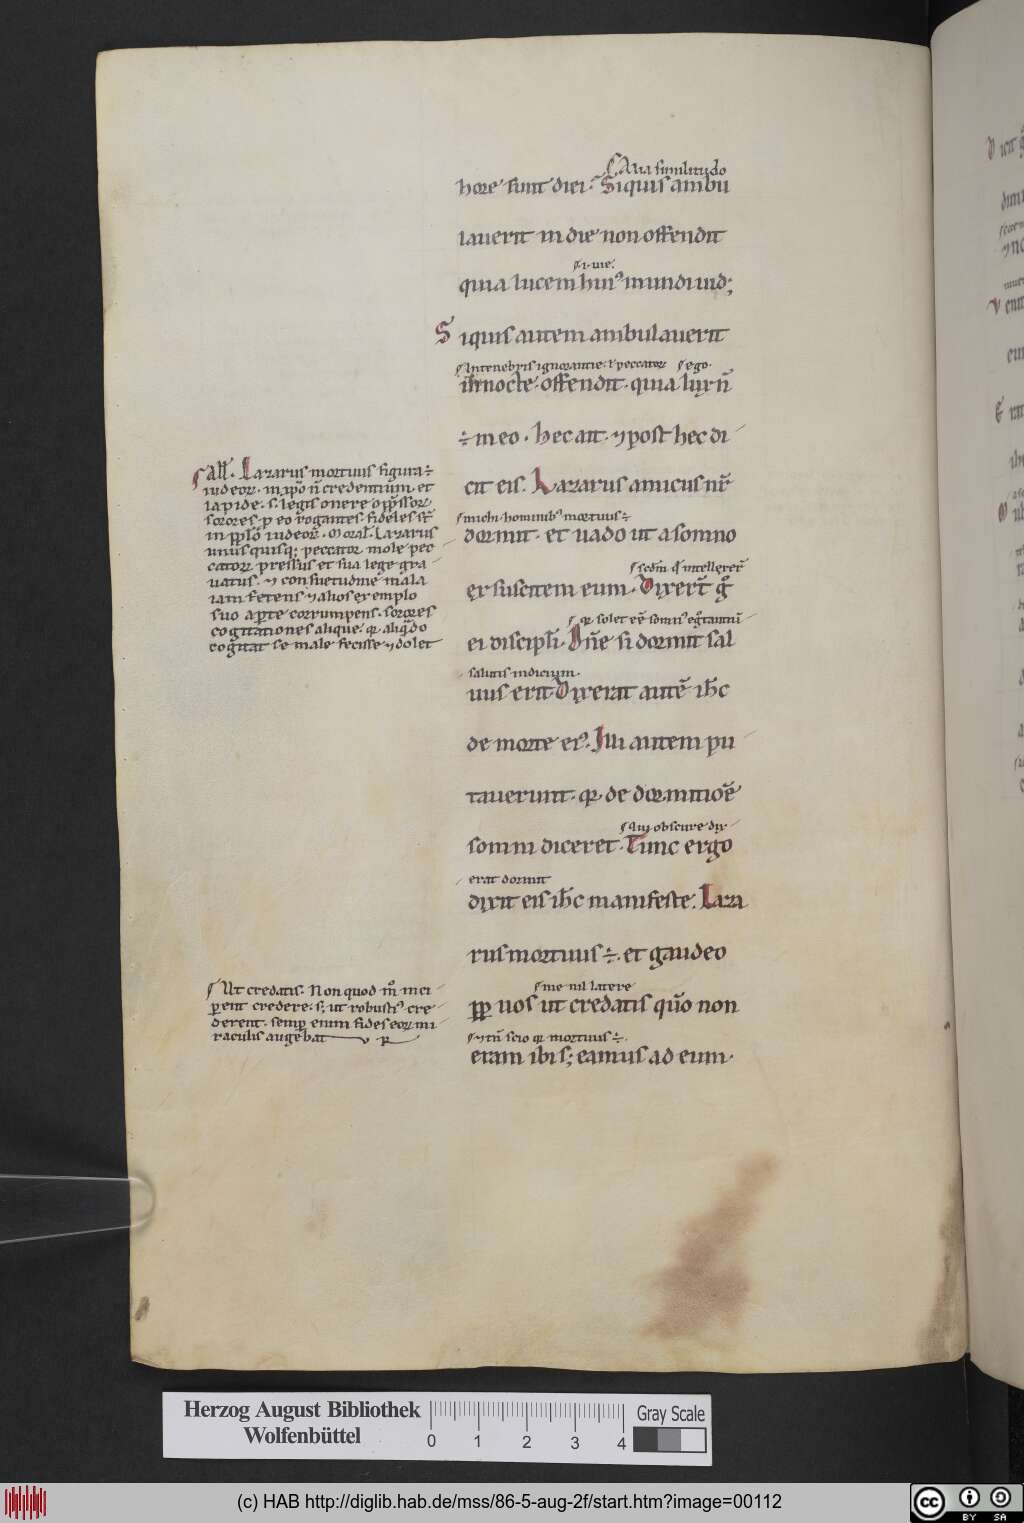 Alia similitudo
hore sunt diei. Siquis ambu
lauerit in die non offendit
.i. me.
quia lucem hui9 mundi uid;
Siquis autem ambulauerit
In tenebris ignorantie. ł peccator ego.
in nocte. offendit. quia lux ñ
÷ in eo. Hec ait. ⁊ post hec di
cit eis. Lazarus amicus nr̄
michi. hominib9 mortuus ÷
dormit. et uado ut a somno
scdm̄ qd̄ intellexer̄
exsuscitem eum. Dixert̄ gͦ
ei discipli. Dn̄e si dormit sal
salutis indicium.
uus erit. Dixerat autē ih̄c
de morte ei9. Illi autem pu
tauerunt. qr de dormitiōe
qui obscure dix
somni diceret. Tunc ergo
erat dormit
dixit eis ih̄c manifeste. Laza
rus mortuus ÷. et gaudeo
me nil latere
ꝓp uos ut credatis qm̄o non
⁊ tn̄ scio qr mortuus ÷.
eram ibi s; eamus ad eum.
All. Lazarus mortuus figura ÷
iudeor. in xp̄o n̄ credentium. et
lapide. s. legis onere opp̄ssor.
sorores p eo rogantes. fideles st̄
in pp̄lo iudeor. Moral. Lazarus
unusquisq; peccator mole pec
cator pressus et sua lege gra
uatus. ⁊ consuetudine mala
iam fetens ⁊ alios exemplo
suo aperte corrumpens. sorores
cogitationes alique. qr aliqn̄do
cogitat se male fecisse ⁊ dolet
Ut credatis. Non quod m̄ inci
perent credere. s; ut robusti9 cre
derent. semp enim fides eor mi
raculis augebat
Herzog August Bibliothek
Wolfenbüttel
0 1 2 3 4
Gray Scale
(c) HAB http://diglib.hab.de/mss/86-5-aug-2f/start.htm?image=00112
cc BY SA